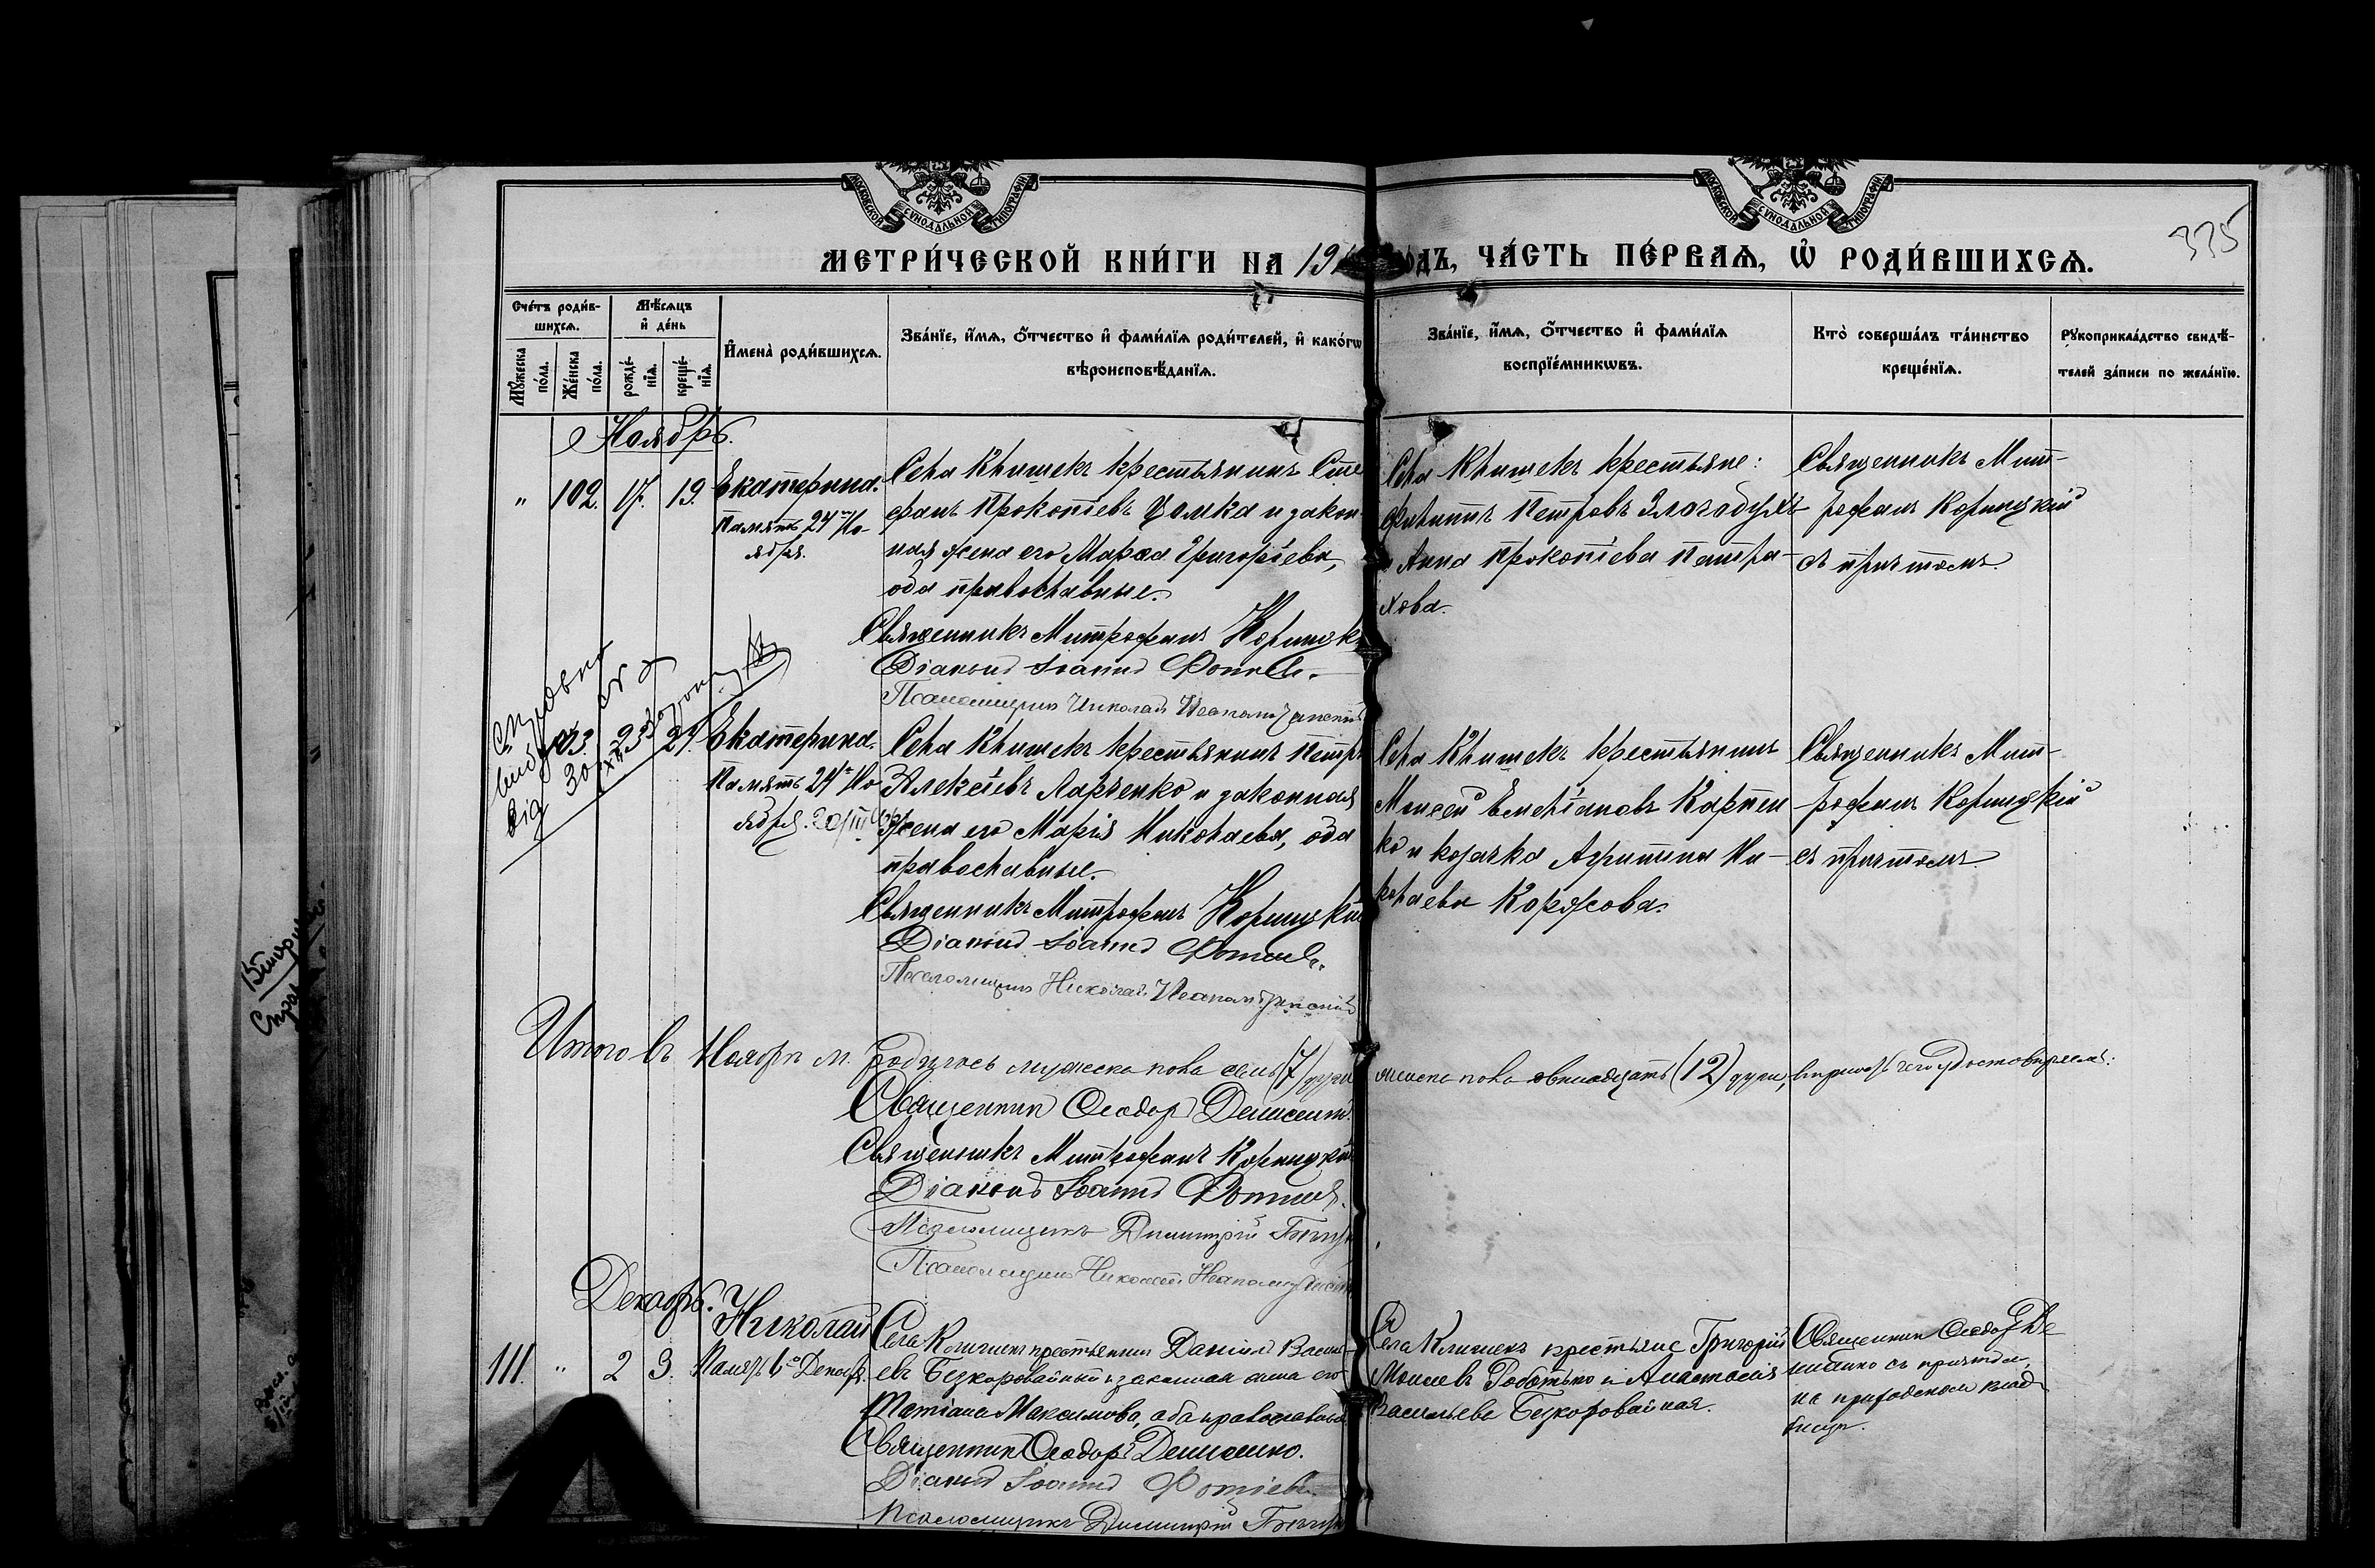 МОСКОВСКОЙ СѴНОДАЛЬНОЙ ТИПОГРАФІИ
МОСКОВСКОЙ СѴНОДАЛЬНОЙ ТИПОГРАФІИ
335
МЕТРИ́ЧЕСКОЙ КНИ́ГИ НА 19 ОДЪ, ЧА́СТЬ ПЕ́РВАѦ, Ѡ҆ РОДИ́ВШИХСѦ.
Сче́тъ роди́в-
шихсѧ.
Мꙋ́жеска по́ла.
Же́нска по́ла.
Мѣ́сѧцъ
и҆ де́нь
рожде́-
нїѧ.
креще́-
нїѧ.
И҆мена̀ роди́вшихсѧ.
Зва́нїе, и҆́мѧ, ѻ҆́тчество и҆ фами́лїѧ роди́телей, и҆ како́гѡ
вѣроисповѣ́данїѧ.
Зва́нїе, и҆́мѧ, ѻ҆́тчество и҆ фами́лїѧ
воспрїе́мникѡвъ.
Кто̀ соверша́лъ та́инство
креще́нїѧ.
Рꙋкоприкла́дство свидѣ́-
телей за́писи по жела́нїю.
Ноябрь.
" 102. 17. 19. Екатерина.
Память 24го Но-
ября.
Села Клишекъ крестьянинъ Сте
фанъ Прокопіевъ Цомка и закон
ная жена его Марѳа Григорьева,
оба православные.
Священникъ Митрофанъ Корицк
Діаконъ Іоаннъ Фотіевъ.
Псаломщикъ Николай
Села Клишекъ крестьяне:
Филиппъ Петровъ
и Анна Прокопіева Петра-
хова.
Священникъ Мит-
рофанъ Корицкій
съ причтомъ.
103. 23 24. Екатерина.
Память 24го Но
ября. 20/III
Села Клишекъ крестьянинъ Петръ
Алексіевъ Лазченко и законная
жена его Марія Николаева, оба
православные.
Священникъ Митрофанъ Корицкій
Діаконъ Іоаннъ Фотіевъ.
Псаломщикъ Николай
Села Клишекъ крестьянинъ
Моисей Емеліановъ Карпен
ко и козачка Агрипина Ни-
колаева Коржова.
Священникъ Мит-
рофанъ Корицкій
съ причтомъ.
Итого въ Ноябрѣ м. родилось мужеска пола семь (7) душъ
женска пола двенадцать (12) душъ,
Священникъ Ѳеодоръ Денисенк
Священникъ Митрофанъ Корицкій
Діаконъ Іоаннъ Фотіевъ.
Псаломщикъ Димитрій
Псаломщикъ Николай
Декабрь.
111. " 2 3. Николай
Память 6го Декабр.
Села Клишекъ крестьянинъ Даніилъ Васил
евъ Безкоровайный и законная жена его
Татіана Максимова, оба православные
Священникъ Ѳеодоръ Денисенко.
Діаконъ Іоаннъ Фотіевъ
Псаломщикъ Димитрій
Села Клишекъ крестьяне Григорій
Моисеевъ Роботько и Анастасія
Васильева Безкоровайная.
Священникъ Ѳеодоръ Де
нисенко съ причтомъ,
на приходскомъ клад
бищѣ.